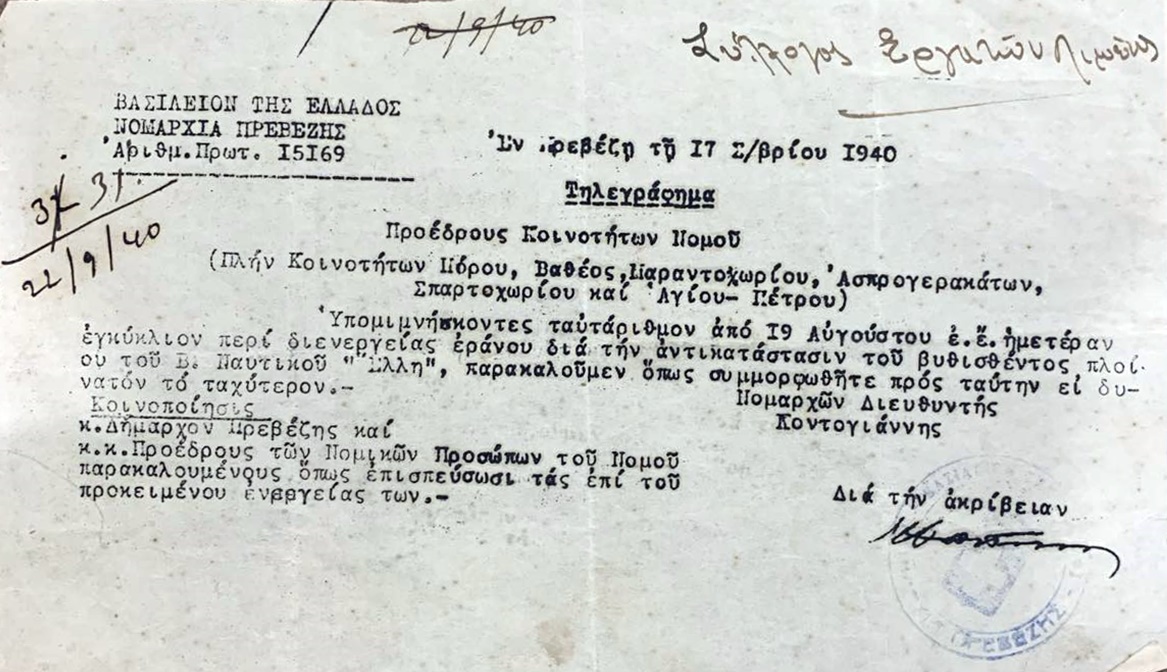 22/9/40
Σύλλογος Ἐργατῶν
ΒΑΣΙΛΕΙΟΝ ΤΗΣ ΕΛΛΑΔΟΣ
ΝΟΜΑΡΧΙΑ ΠΡΕΒΕΖΗΣ
Ἀριθμ.Πρωτ. I5I69
Ἐν Πρεβέζῃ τῇ I7 Σ/βρίου I940
37 37.
22/9/40
Τηλεγράφημα
Προέδρους Κοινοτήτων Νομοῦ
(Πλήν Κοινοτήτων Πόρου, Βαθέος,Μαραντοχωρίου, Ἀσπρογερακάτων,
Σπαρτοχωρίου καί Ἁγίου- Πέτρου)
Ὑπομιμνήσκοντες ταὐτάριθμον ἀπό I9 Αὐγούστου ἐ.ἔ.ἡμετέραν
ἐγκύκλιον περί διενεργείας ἐράνου διά τήν ἀντικατάστασιν τοῦ βυθισθέντος πλοί-
ου τοῦ Β. Ναυτικοῦ "Ἕλλη", παρακαλοῦμεν ὅπως συμμορφωθῆτε πρός ταύτην εἰ δυ-
νατόν τό ταχύτερον.-
Νομαρχῶν Διευθυντής
Κοντογιάννης
Κοινοποίησις
κ.Δήμαρχον Πρεβέζης καί
κ.κ.Προέδρους τῶν Νομικῶν Προσώπων τοῦ Νομοῦ
παρακαλουμένους ὅπως ἐπισπεύσωσι τάς ἐπί τοῦ
προκειμένου ἐνεργείας των.-
Διά τήν ἀκρίβειαν
ΠΡΕΒΕΖΗΣ